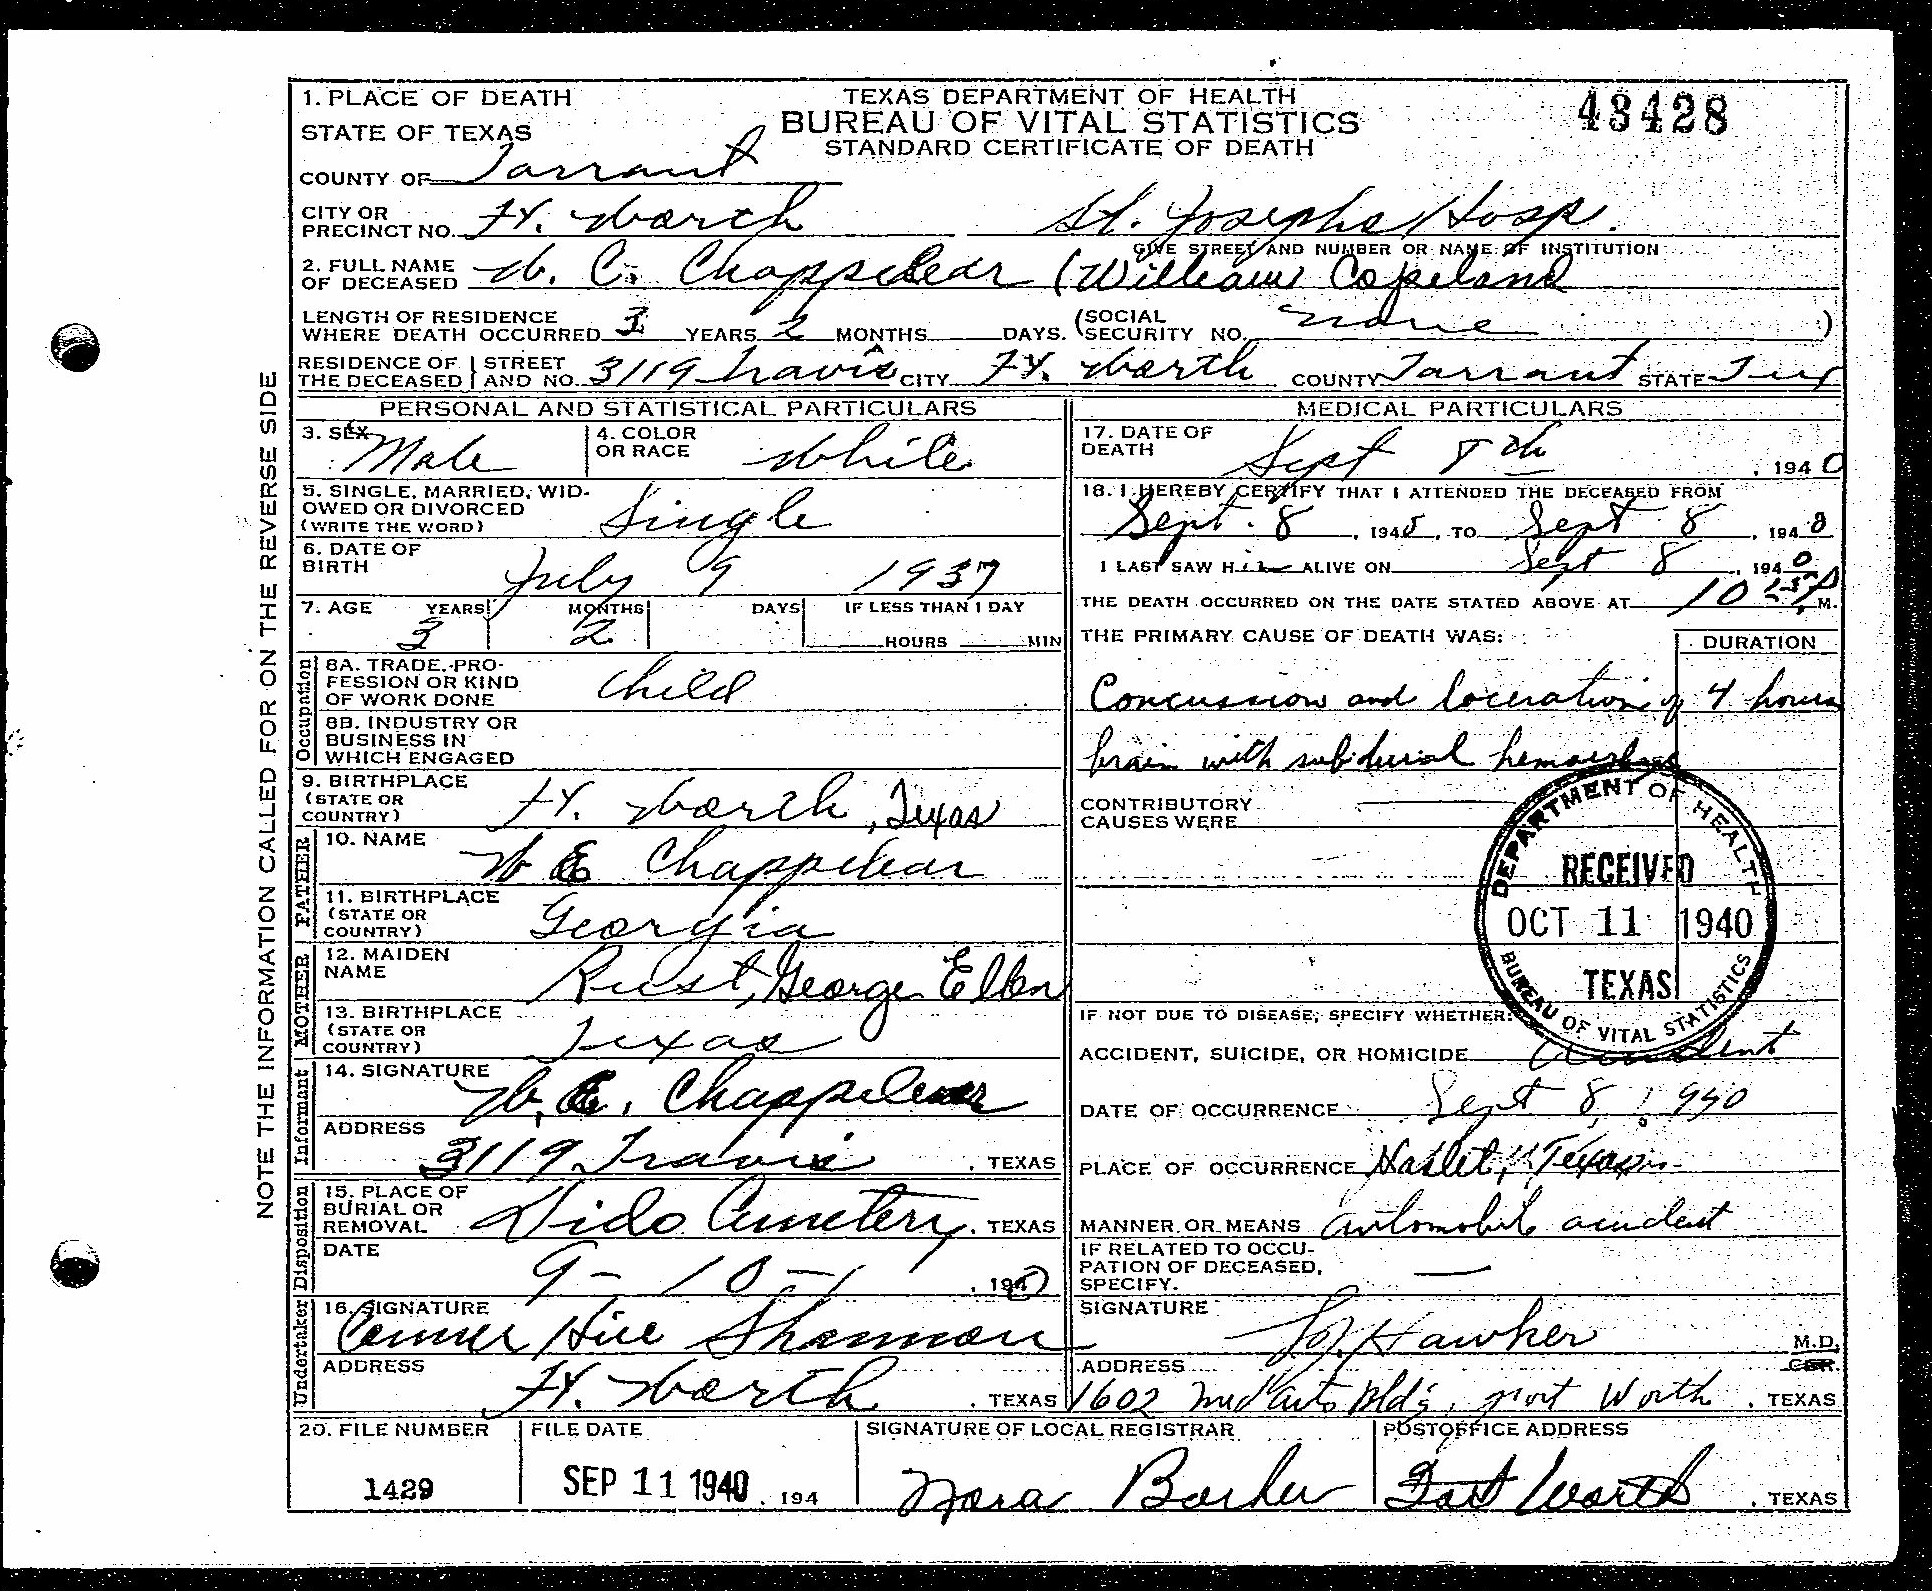 1. PLACE OF DEATH
STATE OF TEXAS
TEXAS DEPARTMENT OF HEALTH
BUREAU OF VITAL STATISTICS
STANDARD CERTIFICATE OF DEATH
48428
COUNTY OF Tarrant
CITY OR PRECINCT NO. Ft. Worth St. Josephs Hosp.
GIVE STREET AND NUMBER OR NAME OF INSTITUTION
2. FULL NAME OF DECEASED W. C. Chappelear (William Copeland
LENGTH OF RESIDENCE WHERE DEATH OCCURRED 3 YEARS 2 MONTHS DAYS. (SOCIAL SECURITY NO. none )
RESIDENCE OF THE DECEASED STREET AND NO. 3119 Travis CITY Ft. Worth COUNTY Tarrant STATE Tex
PERSONAL AND STATISTICAL PARTICULARS
3. SEX Male 4. COLOR OR RACE White
5. SINGLE, MARRIED, WIDOWED OR DIVORCED (WRITE THE WORD) Single
6. DATE OF BIRTH July 9 1937
7. AGE YEARS MONTHS DAYS IF LESS THAN 1 DAY
3 2 HOURS MIN
Occupation
8A. TRADE, PROFESSION OR KIND OF WORK DONE Child
8B. INDUSTRY OR BUSINESS IN WHICH ENGAGED
9. BIRTHPLACE (STATE OR COUNTRY) Ft. Worth, Texas
FATHER
10. NAME W E Chappelear
11. BIRTHPLACE (STATE OR COUNTRY) Georgia
MOTHER
12. MAIDEN NAME Rust, George Ellen
13. BIRTHPLACE (STATE OR COUNTRY) Texas
Informant
14. SIGNATURE W. E. Chappelear
ADDRESS 3119 Travis, TEXAS
Disposition
15. PLACE OF BURIAL OR REMOVAL Dido Cemetery, TEXAS
DATE 9-10-, 1940
Undertaker
16. SIGNATURE Shannon
ADDRESS Ft. Worth, TEXAS
MEDICAL PARTICULARS
17. DATE OF DEATH Sept 8th, 1940
18. I HEREBY CERTIFY THAT I ATTENDED THE DECEASED FROM
Sept. 8, 1940, TO Sept 8, 1940
I LAST SAW Him ALIVE ON Sept 8, 1940
THE DEATH OCCURRED ON THE DATE STATED ABOVE AT 10 P. M.
THE PRIMARY CAUSE OF DEATH WAS: DURATION
Concussion and laceration of 4 hours
brain with subdural hemorrhage
CONTRIBUTORY CAUSES WERE
DEPARTMENT OF HEALTH
RECEIVED
OCT 11 1940
TEXAS
BUREAU OF VITAL STATISTICS
IF NOT DUE TO DISEASE, SPECIFY WHETHER:
ACCIDENT, SUICIDE, OR HOMICIDE Accident
DATE OF OCCURRENCE Sept 8, 1940
PLACE OF OCCURRENCE Haslet, Texas
MANNER OR MEANS automobile accident
IF RELATED TO OCCUPATION OF DECEASED, SPECIFY. —
SIGNATURE Hawker M.D.
ADDRESS 1602 Med Arts Bldg, Fort Worth, TEXAS
20. FILE NUMBER FILE DATE SIGNATURE OF LOCAL REGISTRAR POSTOFFICE ADDRESS
1429 SEP 11 1940, 194 Nora Barker Fort Worth, TEXAS
NOTE THE INFORMATION CALLED FOR ON THE REVERSE SIDE